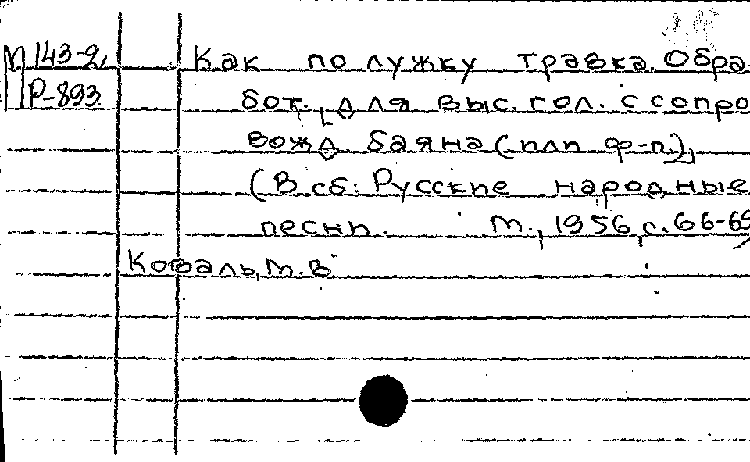 М 143-2, Как по лужку травка. Обра-
Р-893 бот. для выс. гол. с сопро
вожд баяна (или ф-п.),
(В сб: Русские народные
песни. М., 1956, с. 66-69
Коваль, М. В